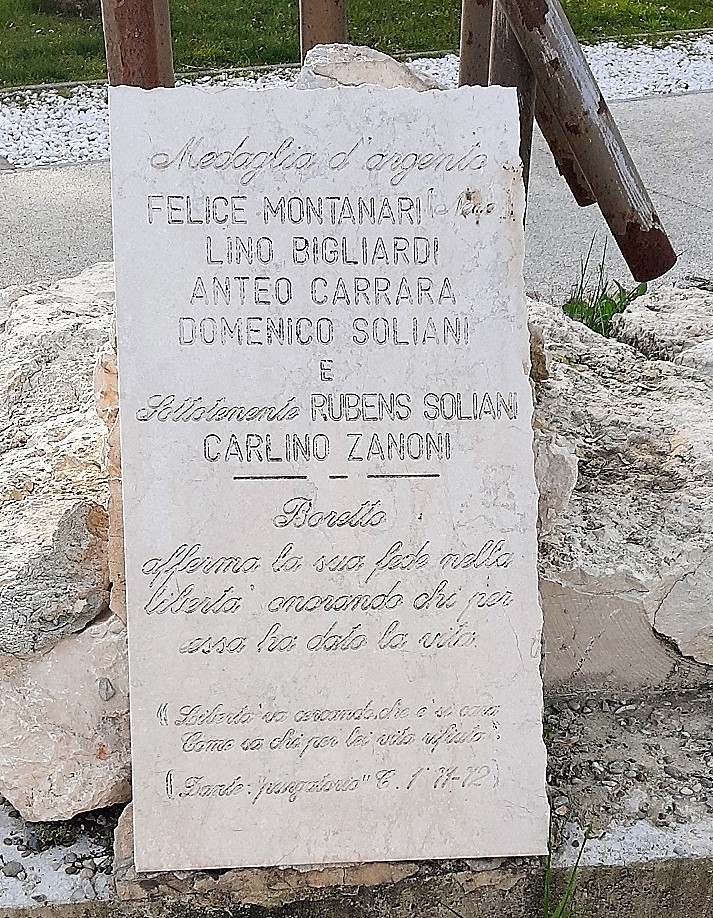 Medaglia d'argento
FELICE MONTANARI (Nero)
LINO BIGLIARDI
ANTEO CARRARA
DOMENICO SOLIANI
E
Sottotenente RUBENS SOLIANI
CARLINO ZANONI
Boretto
afferma la sua fede nella
liberta' onorando chi per
essa ha dato la vita.
"Liberta' va cercando, che e' si cara
Come sa chi per lei vita rifiuta"
(Dante: "purgatorio" C. 1° 71-72)